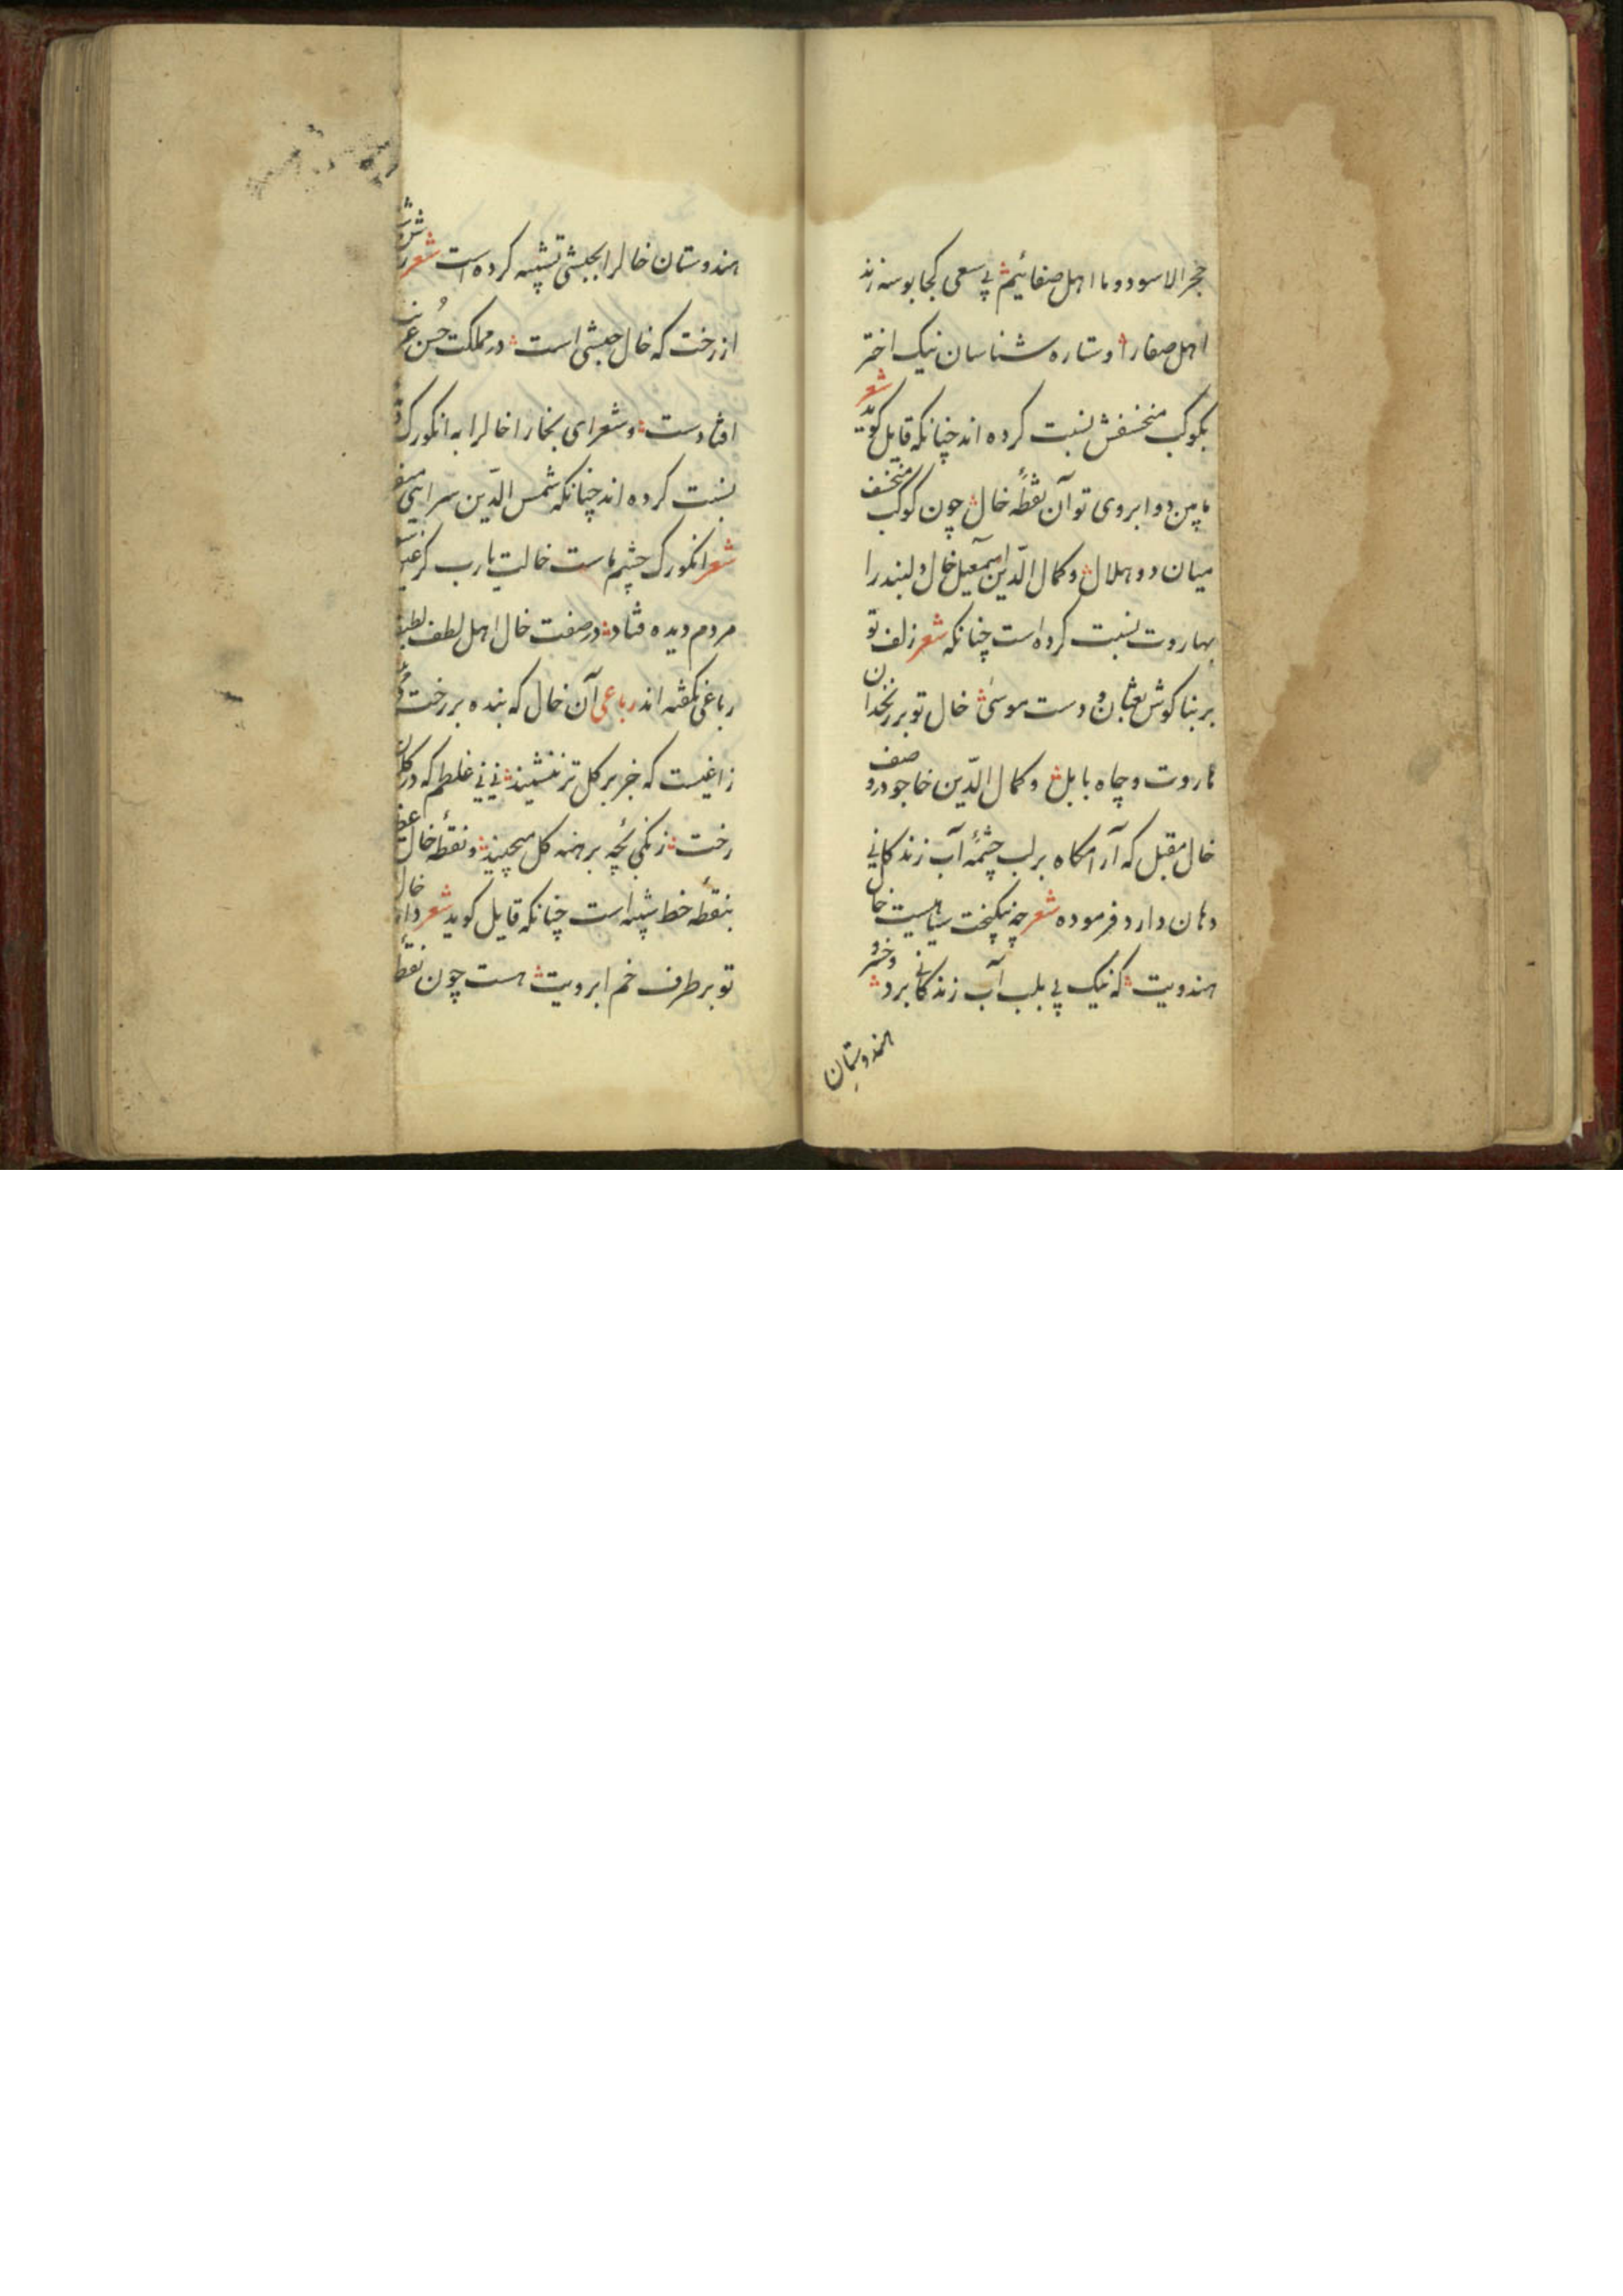 حجر الاسود و ما اهل صفائیم پی سعی کجا بوسه زند
اهل صفا را و ستاره شناسان نیک اختر
بکوکب منخسفش نسبت کرده اند چنانکه قایل کوید شعر
مابین دو ابروی تو آن نقطهٔ خال چون کوکب منخسف
میان دو هلال و کمال الدّین اسمعیل خال دلبند را
بهاروت نسبت کرده است چنانکه شعر زلف تو
بر بناکوش ثعبان و دست موسی خال تو بر زنخدان
هاروت و چاه بابل و کمال الدّین خاجو در وصف
خال مقبل که آرامکاه بر لب چشمهٔ آب زندکانی
دهان دارد فرموده شعر چه نیکبخت سیاهیست خال
هندویت که نیک پی بلب آب زندکانی برد و خسرو
هندوستان
هندوستان خالرا بحبشی تشبیه کرده است شعر
از رخت که خال حبشی است در مملکت حُسن غریب
افتادست و شعرای بخارا خالرا به انکورک
نسبت کرده اند چنانکه شمس الدّین سرایی
شعر انکورک چشم ماست خالت یارب کز
مردم دیده فتاد در صفت خال اهل لطف لطیف
رباعی کفته اند رباعی آن خال که بنده بر رخت
زاغیست که جز بر کل تر ننشیند نی نی غلطم که در کلستان
رخت زنکی بچهٔ برهنه کل میچیند و نقطهٔ خال
بنقطهٔ خط شبیه است چنانکه قایل کوید شعر خال
تو بر طرف خم ابرویت هست چون نقطهٔ